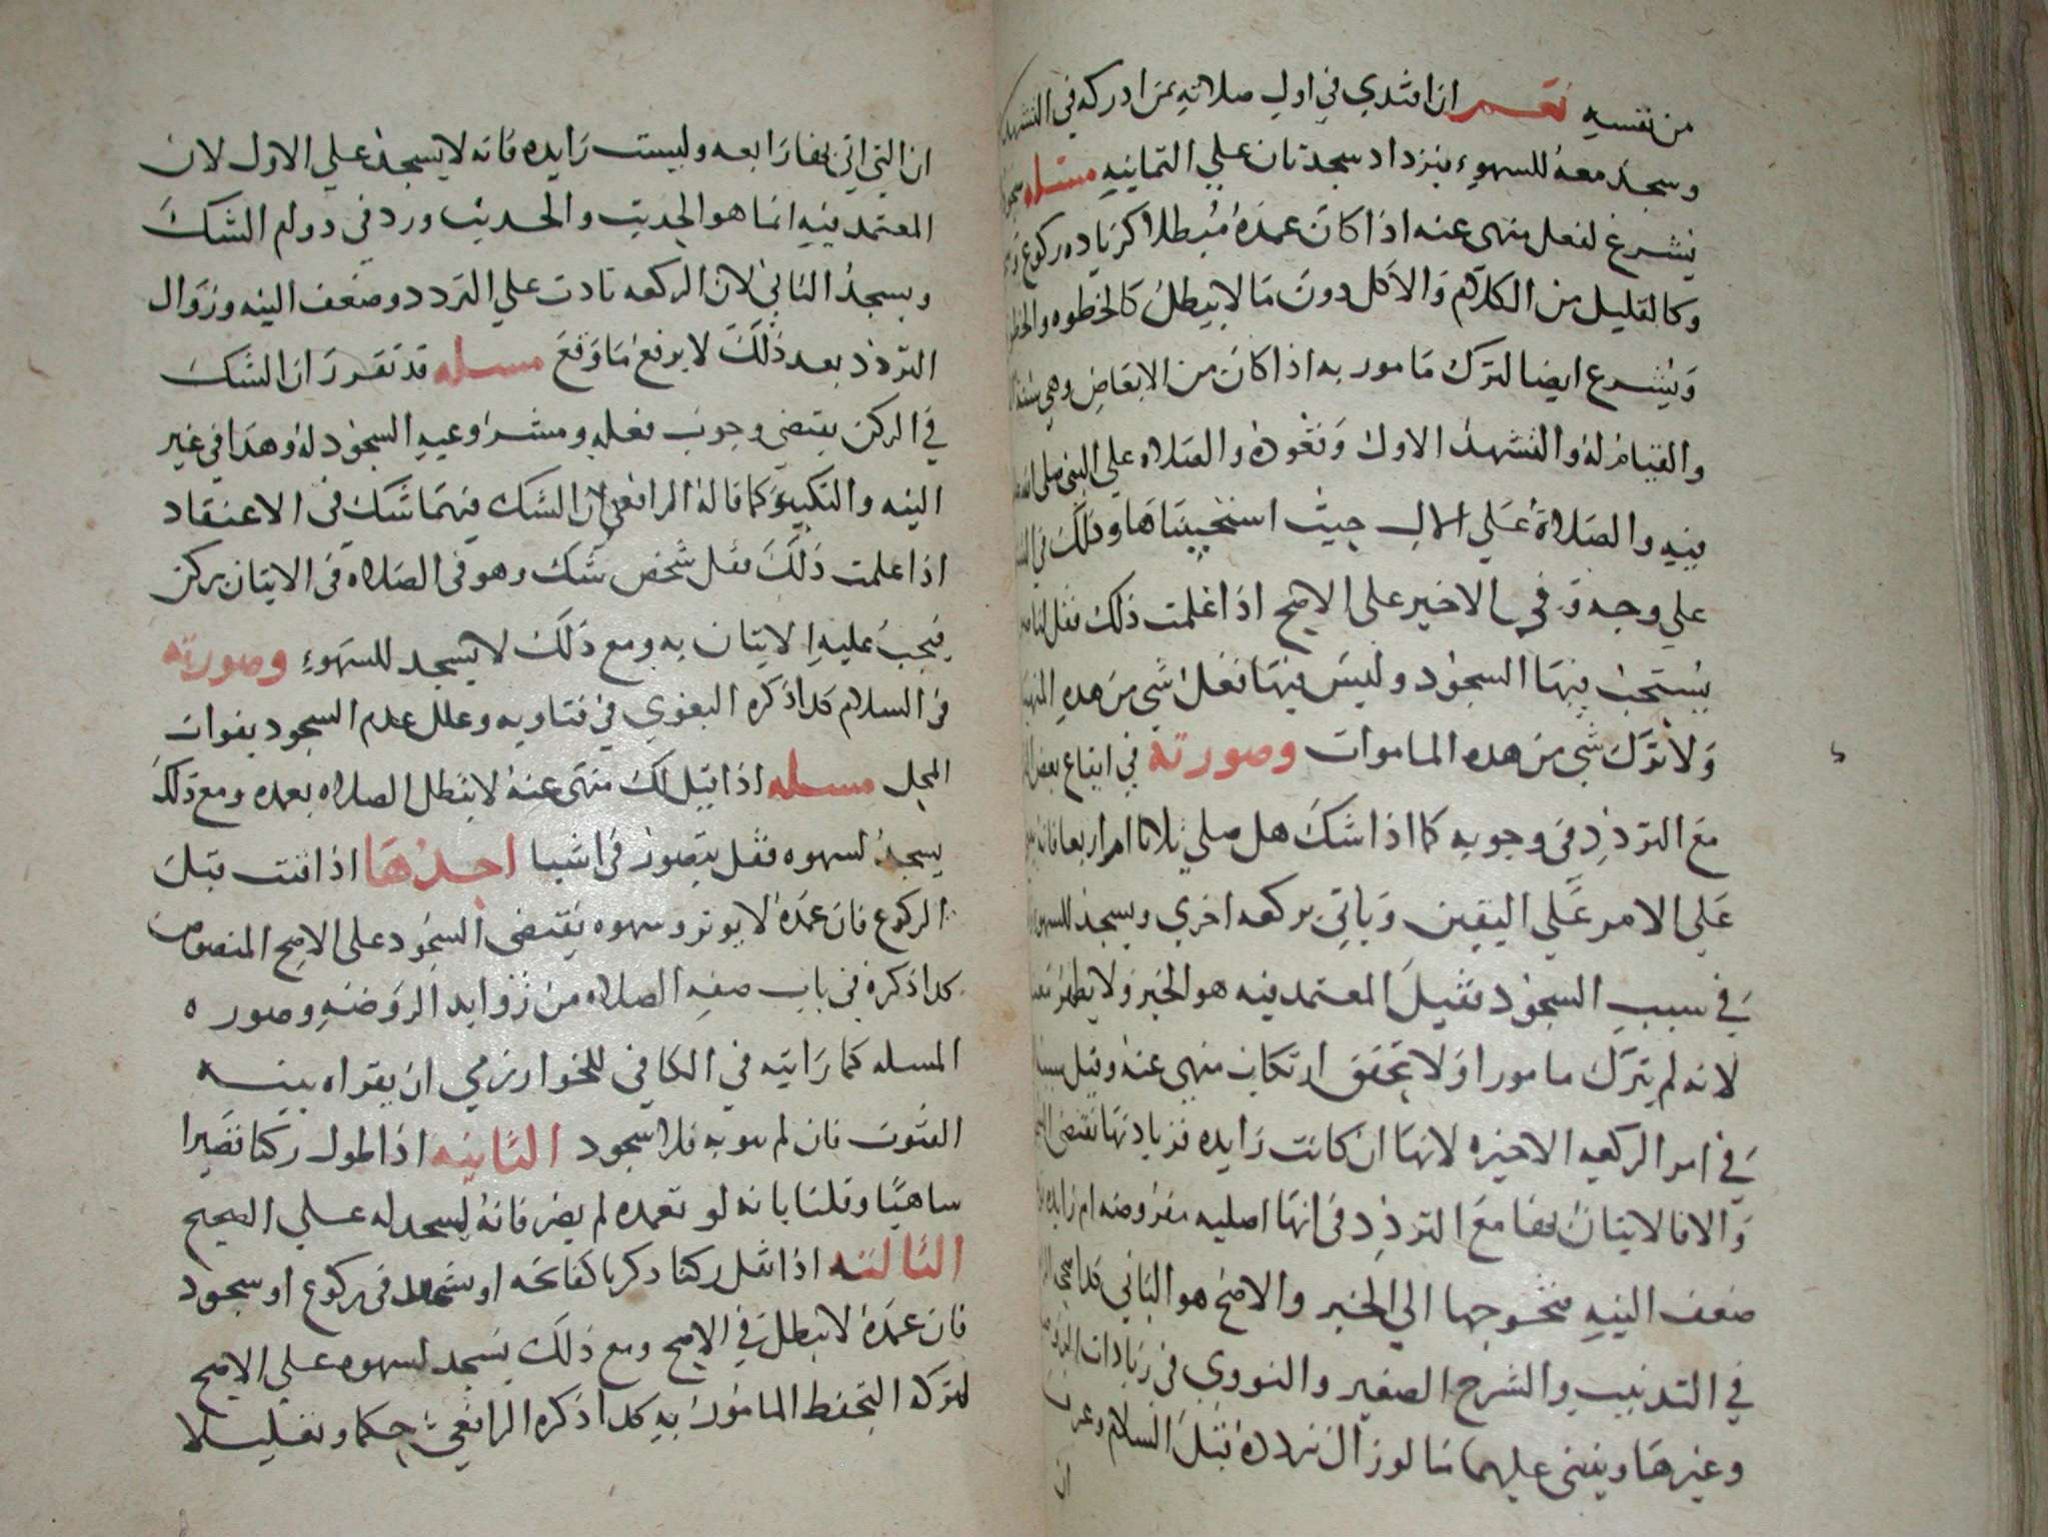 من نفسه نعم ان اقتدي في اول صلاته بمن ادركه في التشهد
وسجد معه للسهو فيزداد سجدتان علي الثمانيه مسئله
يشرع لفعل منهي عنه اذا كان عمده مبطلا كزياده ركوع
وكالقليل من الكلام والاكل دون ما لا يبطل كالخطوه
ويشرع ايضا لترك مامور به اذا كان من الابعاض وهي
والقيام له والتشهد الاول وقعوده والصلاه علي النبي صلي الله
فيه والصلاة علي الال حيث استحببناها وذلك في
علي وجه وفي الاخير علي الاصح اذا علمت ذلك فقل لنا
يستحب فيها السجود وليس فيها فعل شي من هده
ولا ترك شي من هده الماموات وصورته في ايقاع بعض
مع التردد في وجوبه كما اذا شك هل صلي ثلاثا ام اربعا فانه
علي الامر علي اليقين وياتي بركعه اخري ويسجد للسهو
في سبب السجود فقيل المعتمد فيه هو الخبر ولا يظهر
لانه لم يترك مامورا ولا تحقق ارتكاب منهي عنه وقيل
في امر الركعه الاخيره لانها ان كانت زايده فزيادتها تقتضي
والا فالاتيان بها مع التردد في انها اصليه مفروضه ام زايده
ضعف النيه فتحوجها الي الجبر والاصح هو الثاني
في التدنيب والشرح الصغير والنووي في زيادات
وغيرها ويبني عليهما ما لو زال تردده قبل السلام وعرف
ان
ان التي اتي بها رابعه وليست زايده فانه لا يسجد علي الاول لان
المعتمد فيه انما هو الحديث والحديث ورد في دوام الشك
ويسجد الثاني لان الركعه تادت علي التردد وضعف النيه وزوال
التردد بعد ذلك لا يرفع ما وقع مسله قد تقرر ان الشك
في الركن يقتضي وجوب فعله ومشروعيه السجود له وهذا في غير
النيه والتكبير كما قاله الرافعي لان الشك فيهما شك في الاعتقاد
اذا علمت ذلك فقل شخص شك وهو في الصلاه في الاتيان بركن
فيجب عليه الاتيان به ومع ذلك لا يسجد للسهو وصورته
في السلام كذا ذكره البغوي في فتاويه وعلل عدم السجود بفوات
المحل مسله اذا قيل لك منهي عنه لا تبطل الصلاه بعمده ومع ذلك
يسجد لسهوه فقل يتصور في اشيا احدها اذا قنت قبل
الركوع فان عمده لا يوثر وسهوه يقتضي السجود علي الاصح المنصوص
كدا ذكره في باب صفه الصلاه من زوايد الروضه وصوره
المسله كما رايته في الكافي للخوارزمي ان يقراه بنيه
القنوت فان لم ينوه فلا سجود الثانيه اذا طول ركنا قصيرا
ساهيا وقلنا بانه لو تعمده لم يضر فانه يسجد له علي الصحيح
الثالثه اذا نقل ركنا دكريا كفاتحه او تشهد في ركوع او سجود
فان عمده لا يبطل في الاصح ومع ذلك يسجد لسهوه علي الاصح
لتركه التحفظ المامور به كدا ذكره الرافعي حكما وتعليلا